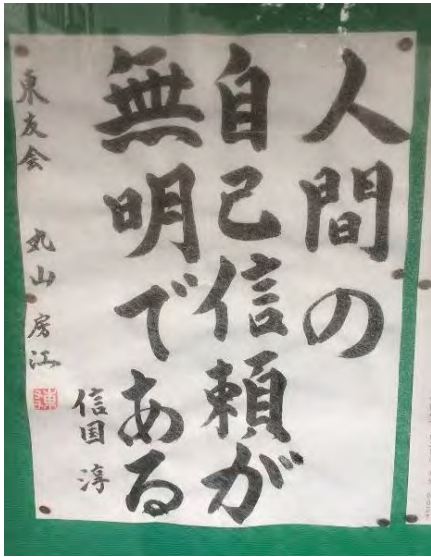 人間の
自己信頼が
無明である
信国 淳
東友会 丸山 房江